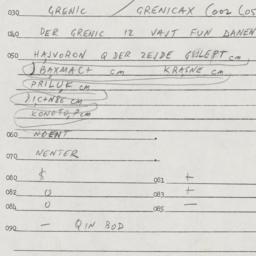 030 GRENIC / GRENICAX (002 (05
040 DER GRENIC IZ VAJT FUN DANEN
050 HAJVORON Q DER ZEJDE GEULEFT cm
) BAXMAC+ cm KRASNE cm
PRILUK cm
DIC+NBE cm
KONOTOP cm
060 NOENT .
070 NENTER .
080 $ 081 +
082 O 083 +
084 O 085 —
090 — Q IN BOD